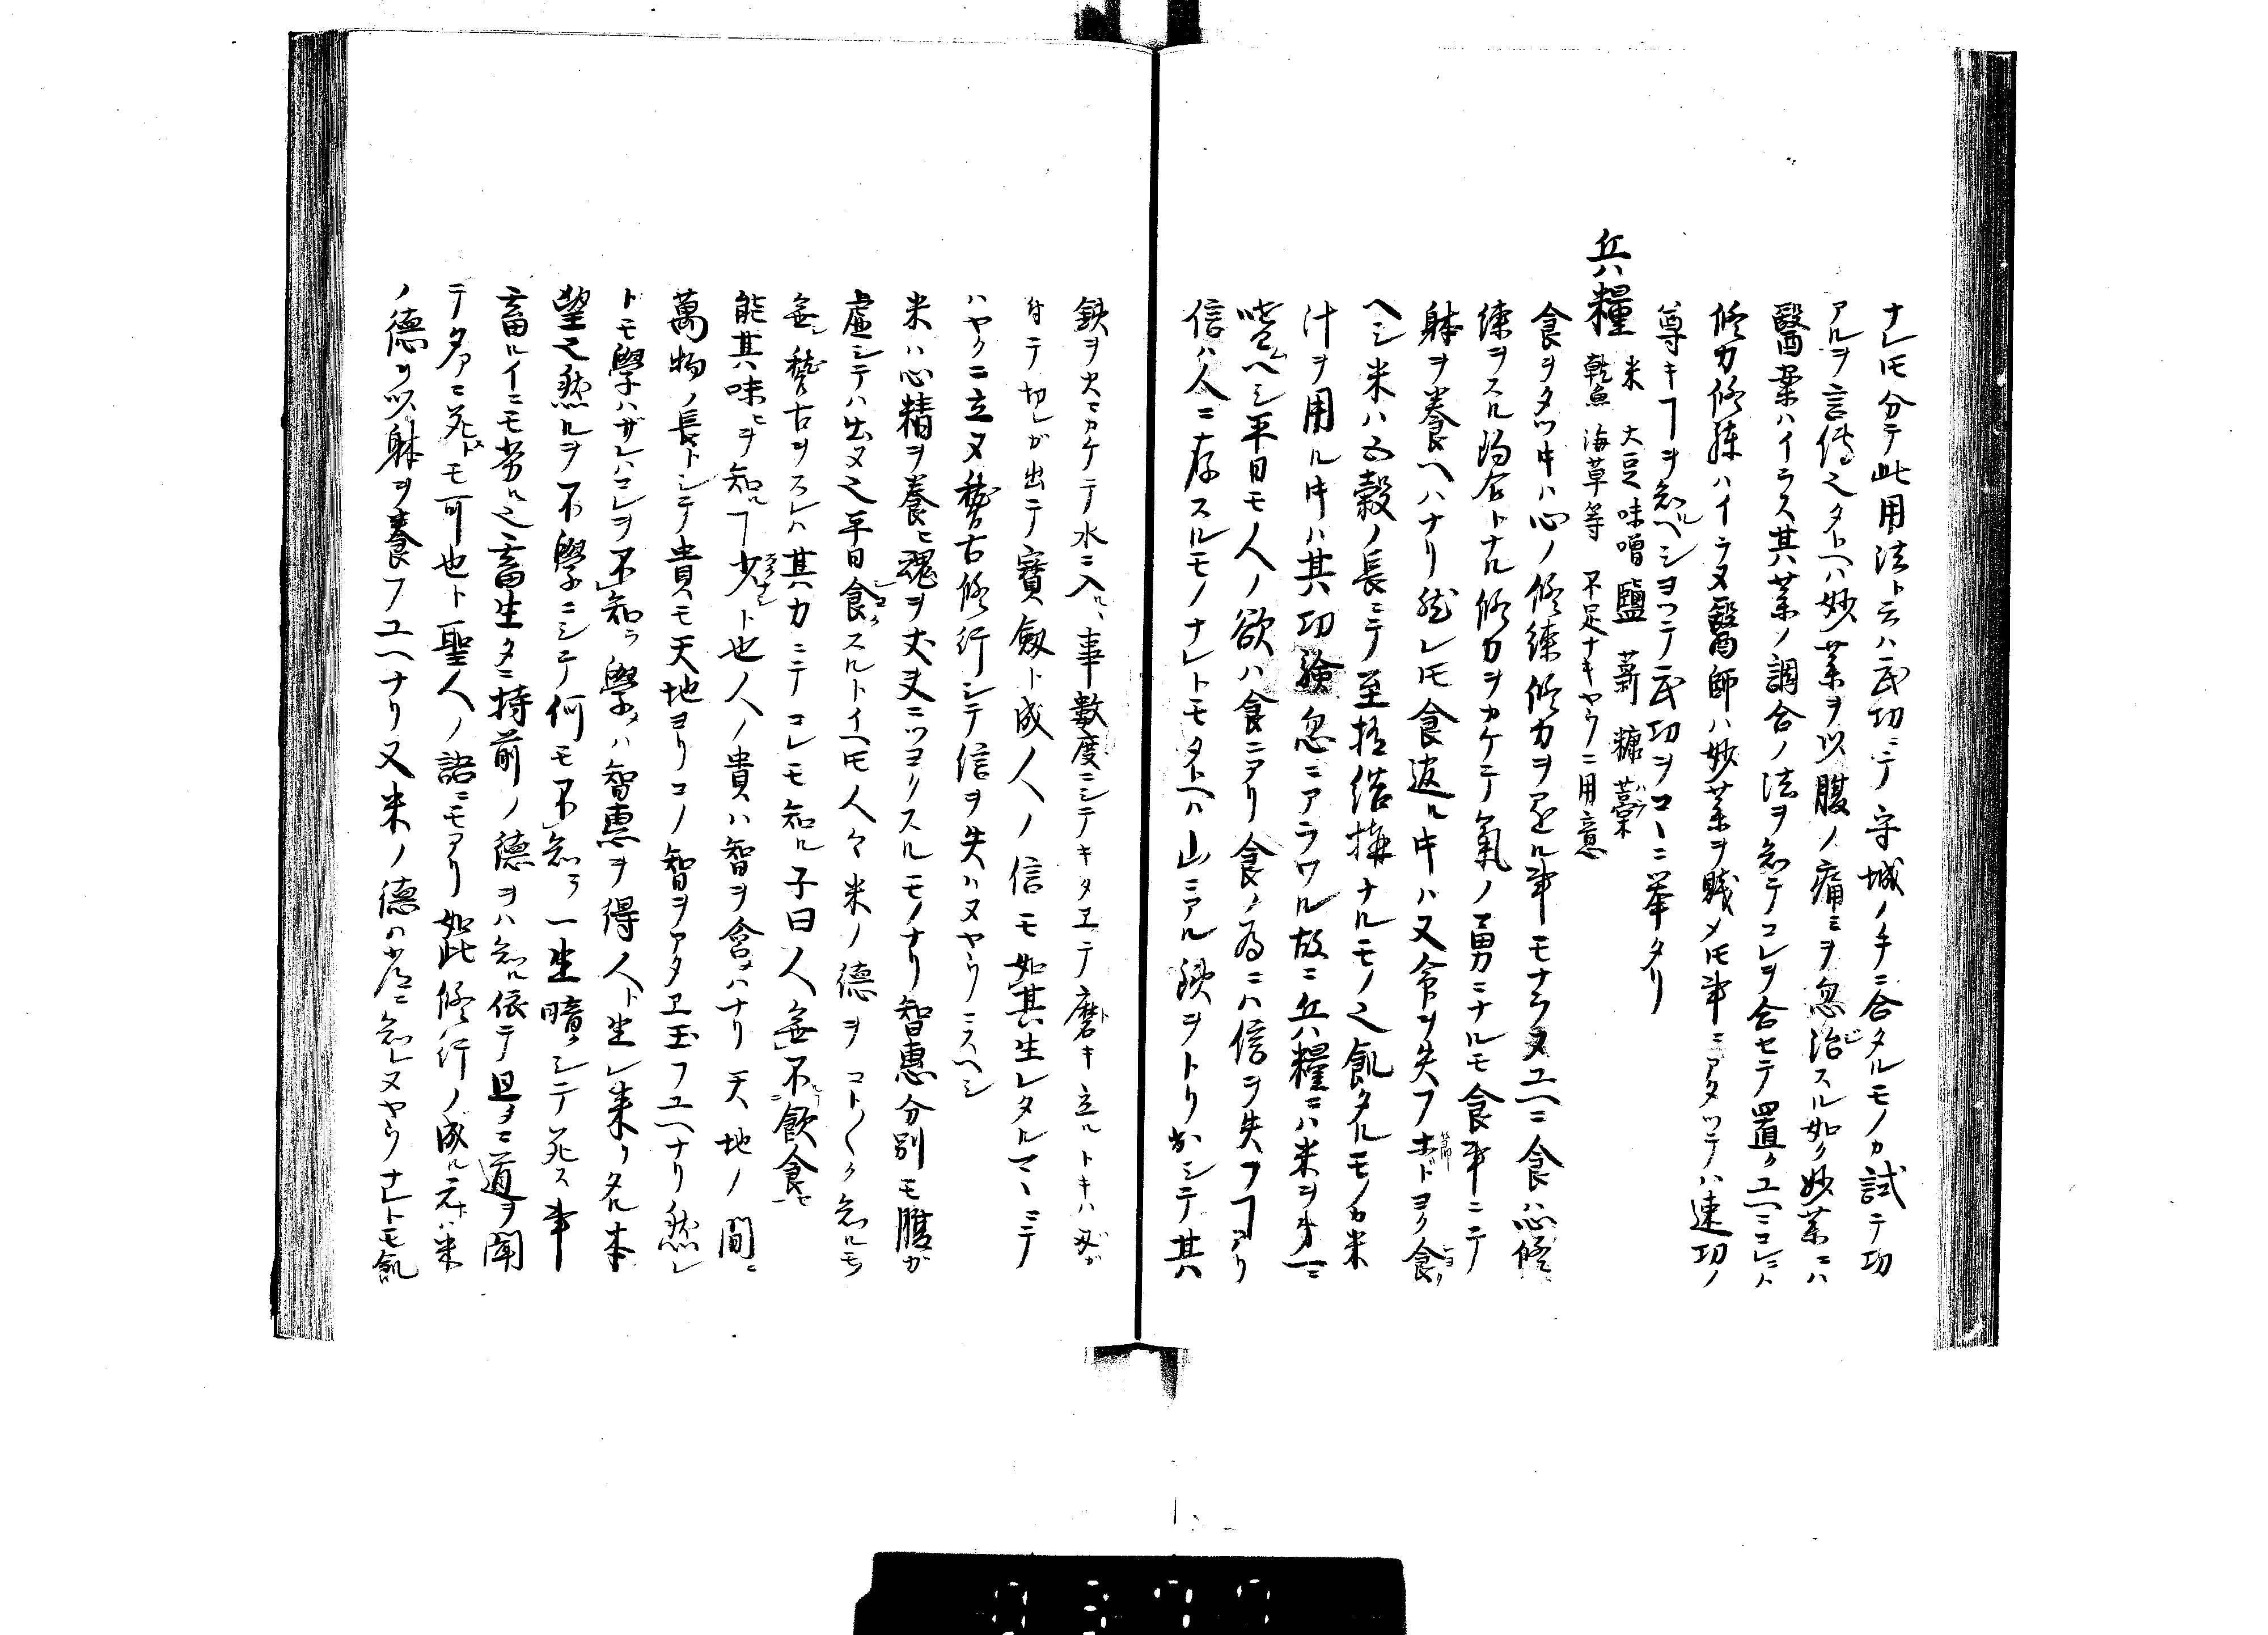 ナレ𪜈分テ此用法ト云ハ武功ニテ守城ノ手ニ合タルモノカ試テ功
アルヲ言傳之タトヘハ妙薬ヲ以腹ノ痛ミヲ忽治スル如ク妙薬ニハ
醫案ハイラス其薬ノ調合ノ法ヲ知テコレヲ合セテ置クユヘニコレニハ
修力修練ハイラヌ醫師ハ妙薬ヲ賎メ𪜈事ニアタツテハ速功ノ
尊キヿヲ知ルヘシヨツテ武功ヲコヽニ挙タリ
兵糧 米 大豆 味噌 鹽 薪 糠 藁
乾魚 海草等 不足ナキヤウニ用意
食ヲタツ𪜈ハ心ノ修練修力ヲ足ル事モナラヌユヘニ食ハ心修
練ヲスル均合トナル修力ヲカケテ氣ノ勇ニナルモ食事ニテ
躰ヲ養ヘハナリ然レ𪜈食返ル寸ハ又命ヲ失フホドヨク食
ヘシ米ハ五穀ノ長ニテ至極結構ナルモノ之飢タルモノカ米
汁ヲ用ル寸ハ其功験忽ニアラワル故ニ兵糧ニハ米ヲ第一ニ
ヘシ平日モ人ノ欲ハ食ニアリ食ノ為ニハ信ヲ失フヿアリ
信ハ人ニ存スルモノナレトモタトヘハ山ニアル鉄ヲトリ出シテ其
鉄ヲ火ニカケテ水ニ入ルヽ事数度ニシテキタヱテ磨キ立ルトキハ刄ガ
付テ切レガ出テ寳劔ト成人ノ信モ如其生レタルマヽニテ
ハヤクニ立ヌ稽古修行シテ信ヲ失ハヌヤウニスヘシ
米ハ心精ヲ養ヒ魂ヲ丈夫ニツヨクスルモノナリ智惠分別モ腹ガ
虚シテハ出ヌ之平日食スルトイヘ𪜈人々米ノ徳ヲコト〱ク知ルモ
無シ稽古ヲスレハ其力ニテコレモ知ル子曰人無不飲食セ
能其味ヒヲ知ルヿ少シト也人ノ貴ハ智ヲ含メハナリ天地ノ間ニ
萬物ノ長トシテ貴モ天地ヨリコノ智ヲアタヱ玉フユヘナリ然レ
トモ學ハザレハコレヲ不知ラ學メハ智恵ヲ得人ト生レ来リタル本
望之然ルヲ不學ニシテ何モ不知ラ一生暗シテ死ス事
畜ルイニモ劣ル之畜生タニ持前ノ徳ヲハ知ル依テ旦タニ道ヲ聞
テ夕ァニ死トモ可也ト聖人ノ語ニモアリ如此修行ノ成ル元ハ米
ノ徳ヲ以躰ヲ養フユヘナリ又米ノ徳ハ常ニ知レヌヤウナレトモ飢